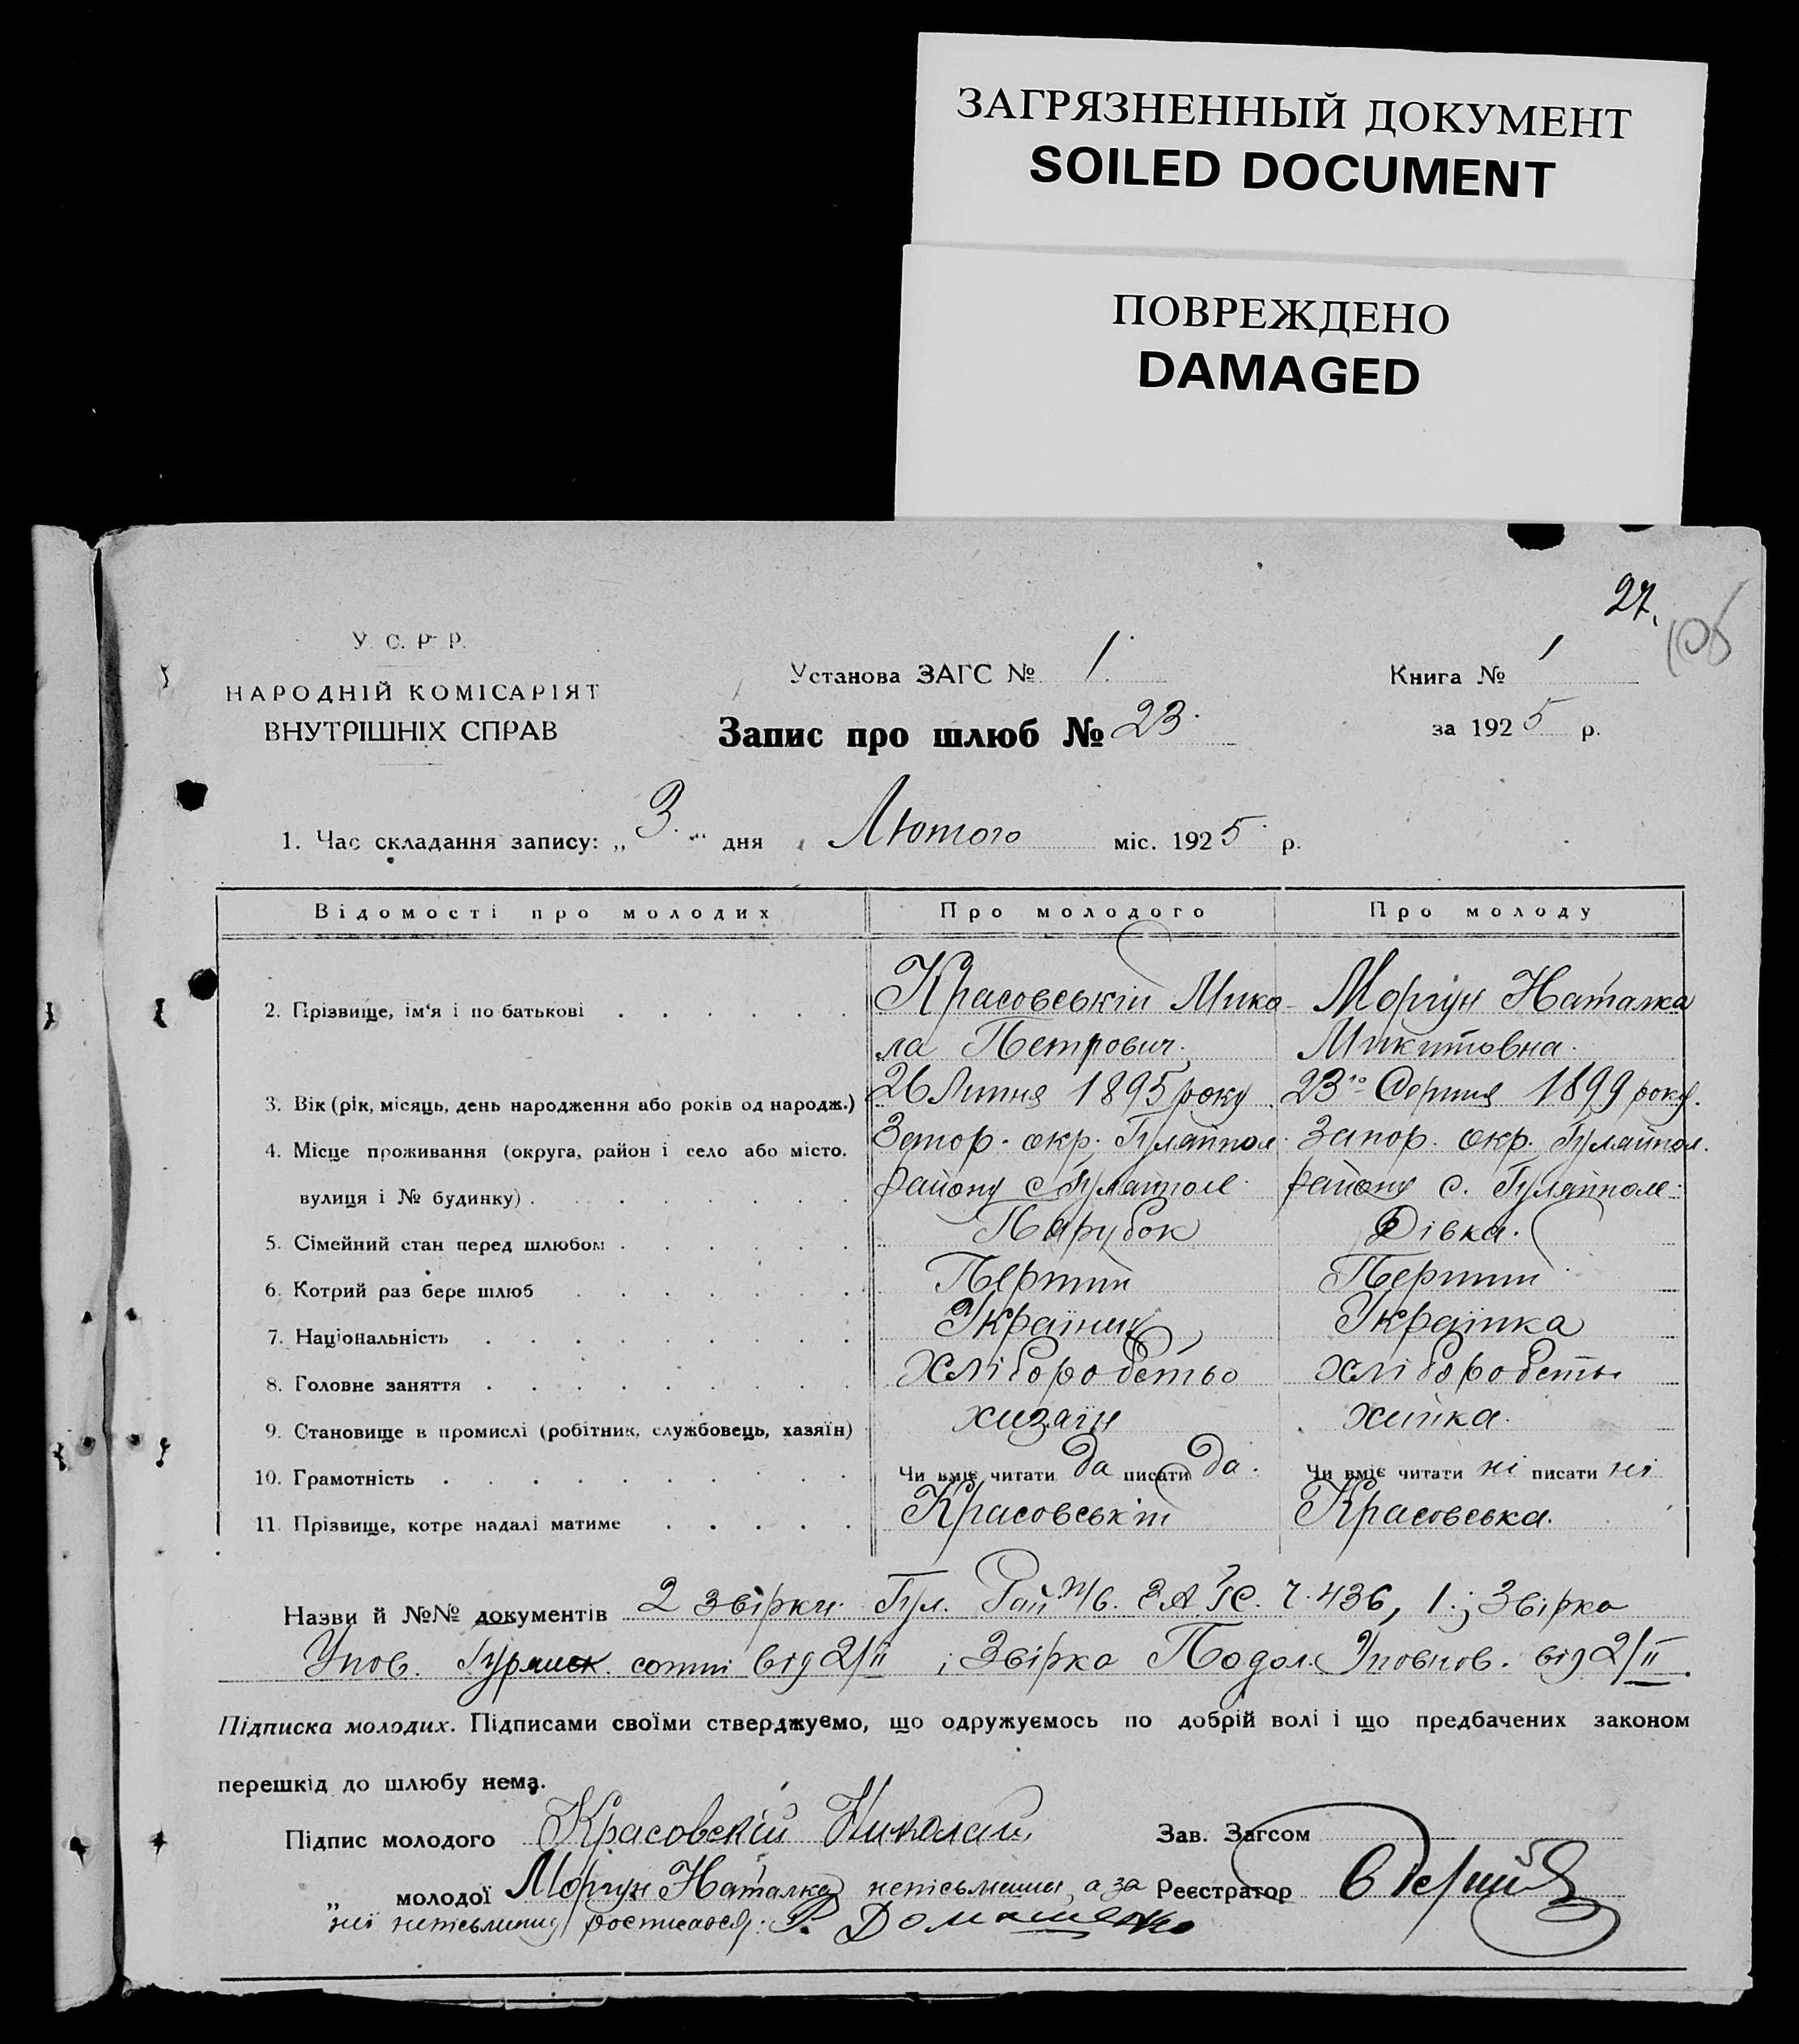 ЗАГРЯЗНЕННЫЙ ДОКУМЕНТ
SOILED DOCUMENT
ПОВРЕЖДЕНО
DAMAGED
27.
106
У. С. Р. Р.
НАРОДНІЙ КОМІСАРІЯТ
ВНУТРІШНІХ СПРАВ
Установа ЗАГС № 1.
Книга № 1
Запис про шлюб № 23.
за 1925 р.
1. Час складання запису: „3." дня Лютого міс. 1925 р.
Відомості про молодих Про молодого Про молоду
2. Прізвище, ім'я і по батькові Красовський Мико- Моргун Наталка
ла Петрович. Микитовна.
3. Вік (рік, місяць, день народження або років од народж.) 26 Липня 1895 року 23го Серпня 1899 року.
4. Місце проживання (округа, район і село або місто. Запор. окр. Гуляйпол. Запор. окр. Гуляйпол.
вулиця і № будинку) району с. Гуляйполе. району с. Гуляйполе.
5. Сімейний стан перед шлюбом Парубок Дівка.
6. Котрий раз бере шлюб Перший Перший
7. Національність Українец Українка
8. Головне заняття хліборобство хліборобство
9. Становище в промислі (робітник, службовець, хазяїн) хазяїн
10. Грамотність Чи вміє читати да писати да. Чи вміє читати ні писати ні
11. Прізвище, котре надалі матиме Красовській Красовська.
Назви й №№ документів 2 звірки Гул. Рай ЗАГС. ч. 436, 1.; Звірка
Упов. сотні від 2/II і Звірка Подол. Уповнов. від 2/II.
Підписка молодих. Підписами своїми стверджуємо, що одружуємось по добрій волі і що предбачених законом
перешкід до шлюбу нема.
Підпис молодого Красовский Николай, Зав. Загсом
„ молодої Моргун Наталка неписьменна, а за Реєстратор
неї неписьменну росписався: Р. Домашенко